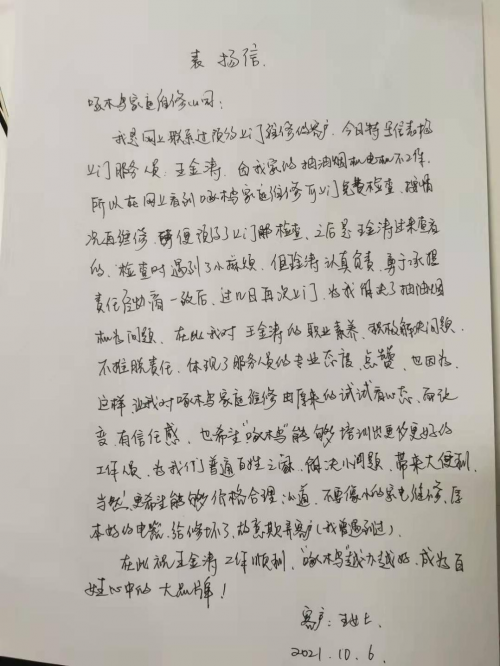 表扬信.
啄木鸟家庭维修公司:
我是网上联系过预约上门维修的客户,今日特写信表扬
上门服务人员:王金涛,因我家的抽油烟机电机不工作,
所以在网上看到啄木鸟家庭维修可上门免费检查,按情
况再维修,便预约了上门检查,之后是王金涛过来查看
的,检查时遇到了小麻烦,但金涛认真负责,勇于承担
责任经协商一致后,过几日再次上门,为我解决了抽油烟
机的问题,在此我对王金涛的职业素养,积极解决问题,
不推脱责任,体现了服务人员的专业态度,点赞,也因为
这样让我对啄木鸟家庭维修由原来的试试看心态,而改
变有信任感,也希望"啄木鸟"能够培训出更多更好的
工作人员,为我们普通百姓之家,解决小问题,带来大便利,
当然!更希望能够价格合理、公道,不要像小的家电维修,原
本好的电器,给修坏了,故意欺弄客户(我曾遇到过).
在此祝王金涛工作顺利,"啄木鸟"越办越好,成为百
姓心中的大品牌!
客户:王女士.
2021.10.6.